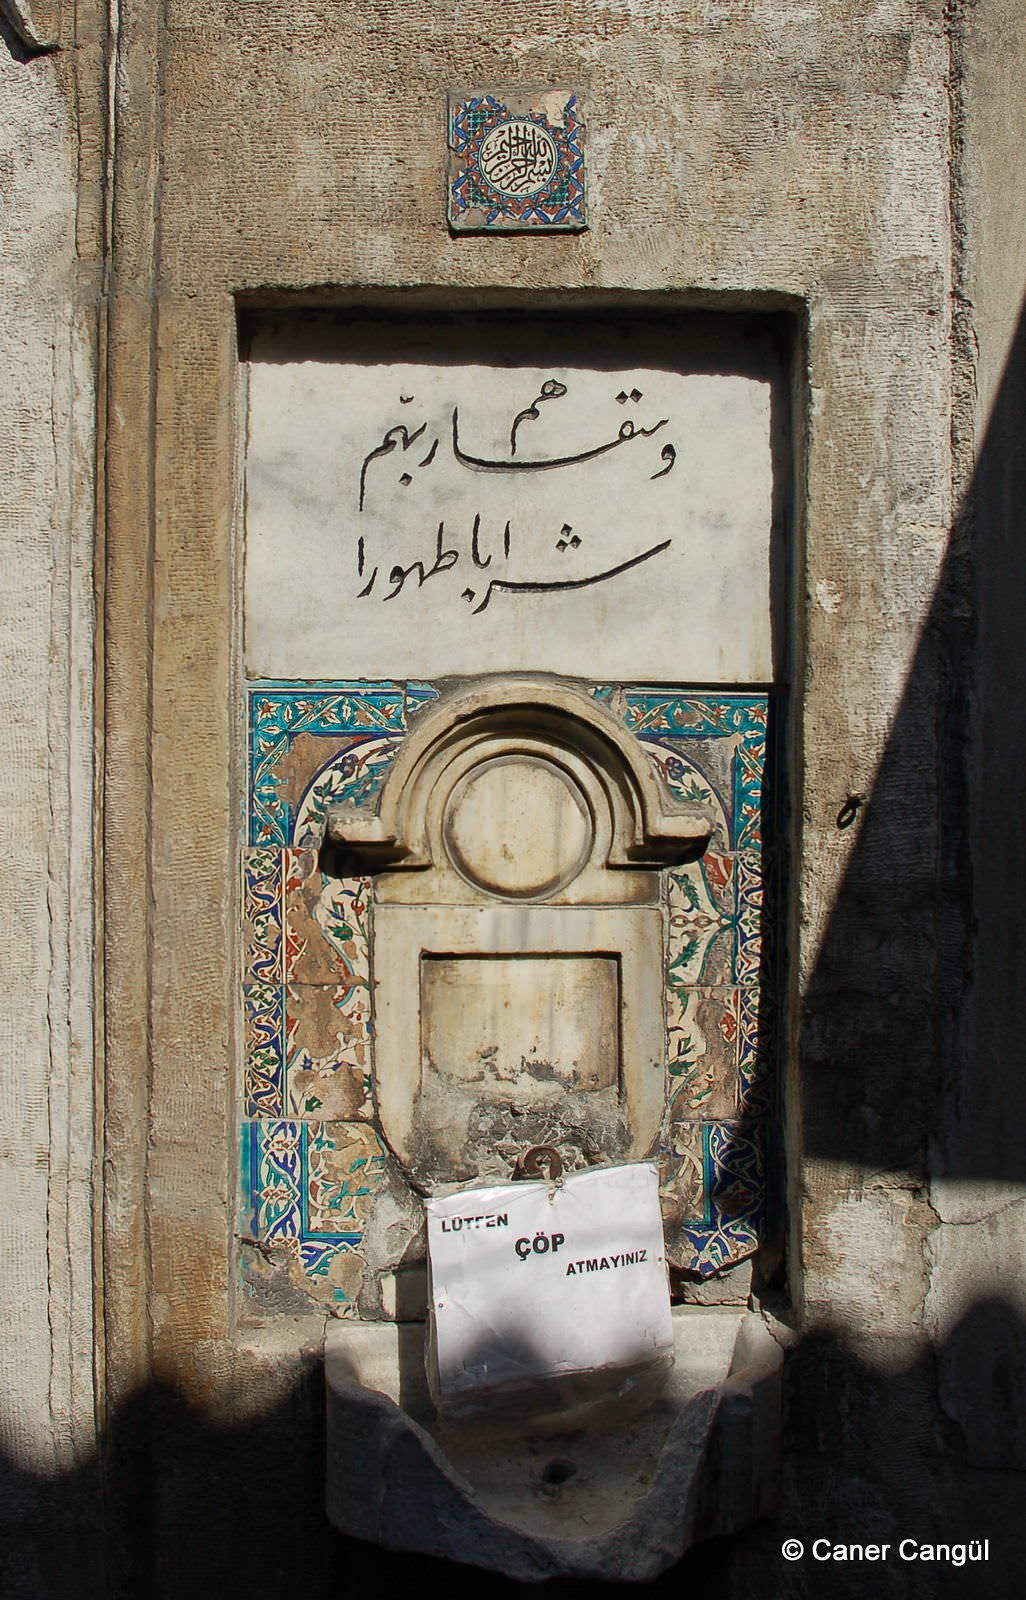 بسم الله الرحمن الرحيم
وسقاهم ربّهم
شرابا طهورا
LÜTFEN
ÇÖP
ATMAYINIZ
© Caner Cangül